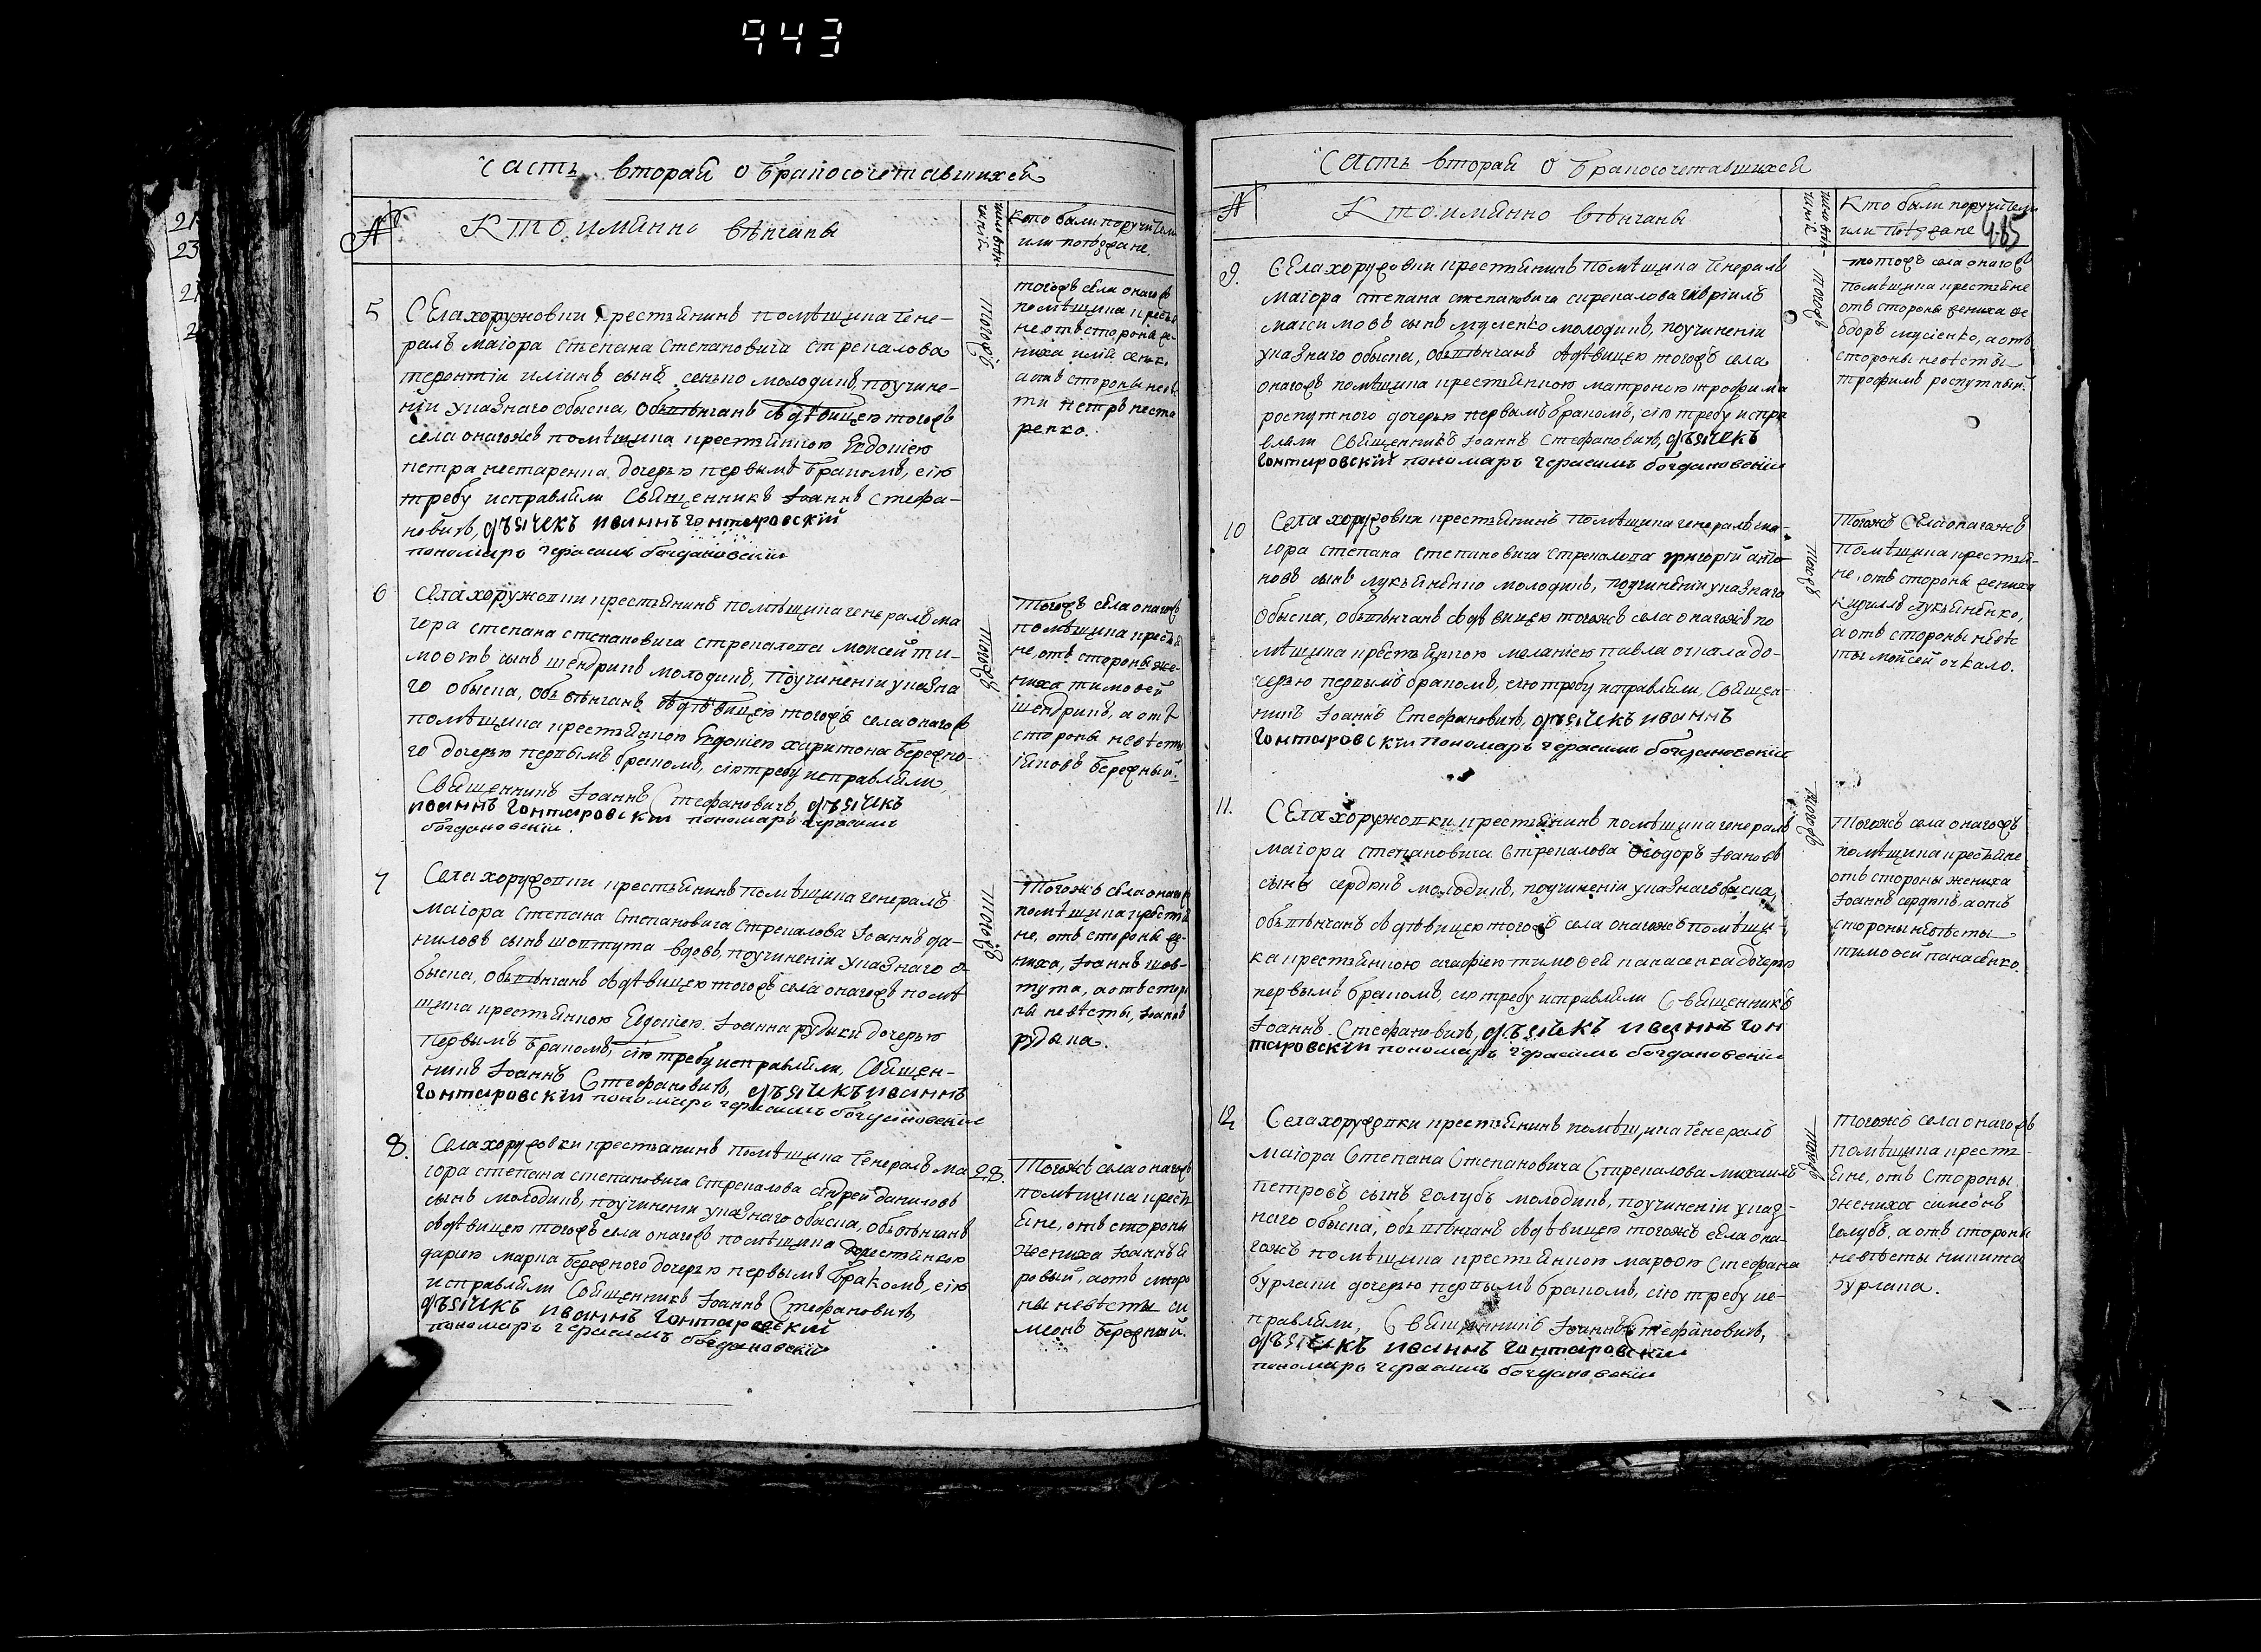 943
Часть вторая о бракосочетавшихся
№
Кто имянно вѣнчаны
Кто были поручители
или поѣзжане.
5
Села хоружовки крестьянинъ помѣщика гене-
ралъ маіора Степана Степановича Стрекалова
терентій иліинъ сынъ сенько молодикъ, поучине-
ніи указнаго обыска, объвѣнчанъ здѣвицею тогожъ
села онагожъ помѣщика крестьянкою Евдокіею
петра нестаренка дочерью первымъ бракомъ, сію
требу исправляли Священникъ Іоаннъ Стефа-
новичъ, дьячекъ иваннъ гонтаровскій
пономарь герасимъ богдановскій
тогожъ
тогожъ села онагожъ
помѣщика крестья
не отъ стороны же-
ниха илія сенко,
а отъ стороны невѣс
ти петръ неста
ренко.
6
Села хоружовки крестьянинъ помѣщика генералъ ма
іора степана степановича стрекалова моисей ти-
моѳѣевъ сынъ шендрикъ молодикъ, поучиненіи указна
го обыска, объвѣнчанъ здѣвицею тогожъ села онагожъ
помѣщика крестьянкою Евдокіею харитона бережно-
го дочерью первымъ бракомъ, сію требу исправляли
Священникъ Іоаннъ Стефановичъ, дьячекъ
иваннъ гонтаровскій пономарь герасимъ
богдановскій.
тогожъ
тогожъ села онагожъ
помѣщика крестья
не, отъ стороны же-
ниха тимоѳей
шендрикъ, а отъ
стороны невѣсты
іаковъ бережный.
7
Села хоружовки крестьянинъ помѣщика генералъ
маіора Степана Степановича Стрекалова Іоаннъ да-
ниловъ сынъ шовтута вдовъ, поучиненіи указнаго о-
быска, объвѣнчанъ здѣвицею тогожъ села онагожъ помѣ
щика крестьянкою Евдокіею Іоанна рудыки дочерью
первымъ бракомъ, сію требу исправляли, Священ-
никъ Іоаннъ Стефановичъ, дьячекъ иваннъ
гонтаровскій пономарь герасимъ богдановскій
тогожъ
Тогожъ села онагожъ
помѣщика крестья
не, отъ стороны же-
ниха, Іоаннъ шов-
тута, а отъ сторо
ны невѣсты, Іоаннъ
рудыка.
8.
Села хоружовки крестьянинъ помѣщика генералъ ма
іора степана степановича стрекалова андрей даниловъ
сынъ молодикъ, поучиненіи указнаго обыска, объвѣнчанъ
здѣвицею тогожъ села онагожъ помѣщика крестьянкою
дарією марка бережного дочерью первымъ бракомъ, сію
исправляли Священникъ Іоаннъ Стефановичъ,
дьячекъ иваннъ гонтаровскій
пономарь герасимъ богдановскій
28.
Тогожъ села онагожъ
помѣщика кресть
яне, отъ стороны
жениха Іоаннъ я
ровый, а отъ сторо
ны невѣсты си
меонъ бережный.
Часть вторая о бракосочетавшихся
№
Кто имянно вѣнчаны
Кто были поручители
или поѣзжане
485
9.
Села хоружовки крестьянинъ помѣщика генералъ
маіора степана степановича стрекалова гавріилъ
максимовъ сынъ мусіенко молодикъ, поучиненіи
указнаго обыска, объвѣнчанъ здѣвицею тогожъ села
онагожъ помѣщика крестьянкою матроною трофима
роспутного дочерью первымъ бракомъ, сію требу испра
вляли Священникъ Іоаннъ Стефановичъ, дьячекъ
гонтаровскій пономарь герасимъ богдановскій
тогожъ
тогожъ села онагожъ
помѣщика крестьяне
отъ стороны жениха ѳе
одоръ мусіенко, а отъ
стороны невѣсты
трофимъ роспутный.
10
Села хоружовки крестьянинъ помѣщика генералъ ма-
іора степана степановича стрекалова григорій анто
новъ сынъ лукьяненко молодикъ, поучиненіи указнаго
обыска, объвѣнчанъ здѣвицею тогожъ села онагожъ по
мѣщика крестьянкою меланіею павла очкала до-
черью первымъ бракомъ, сію требу исправляли, Священ-
никъ Іоаннъ Стефановичъ, дьячекъ иваннъ
гонтаровскій пономарь герасимъ богдановскій
тогожъ
Тогожъ села онагожъ
помѣщика крестья-
не, отъ стороны жениха
кириллъ лукьяненко,
а отъ стороны невѣс
ты моисей очкало.
11.
Села хоружовки крестьянинъ помѣщика генералъ
маіора степановича Стрекалова Ѳеодоръ Іоановъ
сынъ сердюкъ молодикъ, поучиненіи указнаго обыска,
объвѣнчанъ здѣвицею тогожъ села онагожъ помѣщи-
ка крестьянкою агафіею тимоѳей панасенка дочерью
первымъ бракомъ, сію требу исправляли Священникъ
Іоаннъ Стефановичъ, дьячекъ иваннъ гон
таровскій пономарь герасимъ богдановскій
тогожъ
Тогожъ села онагожъ
помѣщика крестьяне
отъ стороны жениха
Іоаннъ сердюкъ, а отъ
стороны невѣсты
тимоѳей панасенко.
12
Села хоружовки крестьянинъ помѣщика генералъ
маіора Степана Степановича Стрекалова михаилъ
петровъ сынъ голубъ молодикъ, поучиненіи указ-
наго обыска, объвѣнчанъ здѣвицею тогожъ села она-
гожъ помѣщика крестьянкою марѳою Стефана
бурлаки дочерью первымъ бракомъ, сію требу ис-
правляли, Священникъ Іоаннъ Стефановичъ,
дьячекъ иваннъ гонтаровскій
пономарь герасимъ богдановскій
тогожъ
тогожъ села онагожъ
помѣщика кресть-
яне, отъ стороны
жениха симеонъ
голубъ, а отъ стороны
невѣсты никита
бурлака.